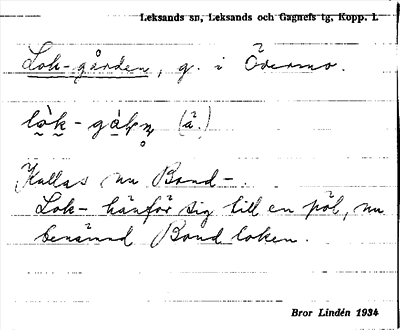 Leksands sn, Leksands och Gagnefs tg, Kopp. l.
Lok-gården, g. i Övermo.
(å.)
Kallas nu Bond-.
Lok- hänför sig till en pöl, nu
benämnd Bondloken.
Bror Lindén 1934